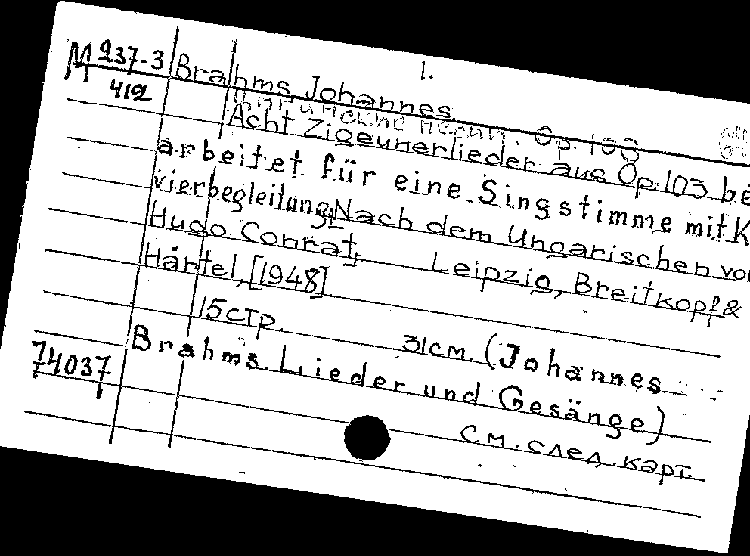 1.
М 237-3
412
Brahms Johannes
Acht Zigeunerlieder aus Op.103 be
arbeitet für eine Singstimme mit K
vierbegleitung. Nach dem Ungarischen vo
Hugo Conrat. Leipzig, Breitkopf &
Härtel, [1948]
15 стр. 31см. (Johannes
Brahms. Lieder und Gesänge)
74037
См. след. карт.